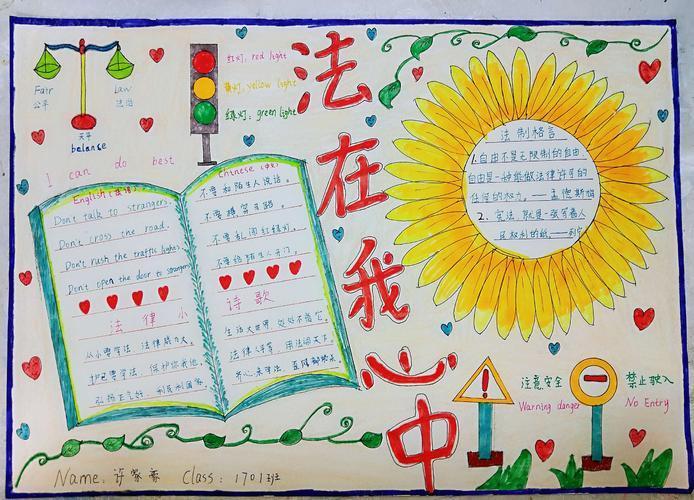 法在我心中
Fair
公平
Law
法治
天平
balanse
红灯: red light
黄灯: yellow light
绿灯: green light
I can do best
English (英语)
Don't talk to strangers.
Don't cross the road.
Don't rush the traffic lights
Don't open the door to strangers
法律小
Chinese (中文)
不要和陌生人说话。
不要横穿马路。
不要乱闯红绿灯。
不要给陌生人开门。
诗歌
从小要学法、法律威力大。
生活大世界 处处不指它。
法律人人
法制格言
1.自由不是无限制的自由,
自由是一种能做法律许可的
任何的权力。——孟德斯鸠
2、宪法,就是一张写着人
民权利的纸。——列宁
注意安全
Warning danger
禁止驶入
No Entry
Name: 许
Class: 1701班